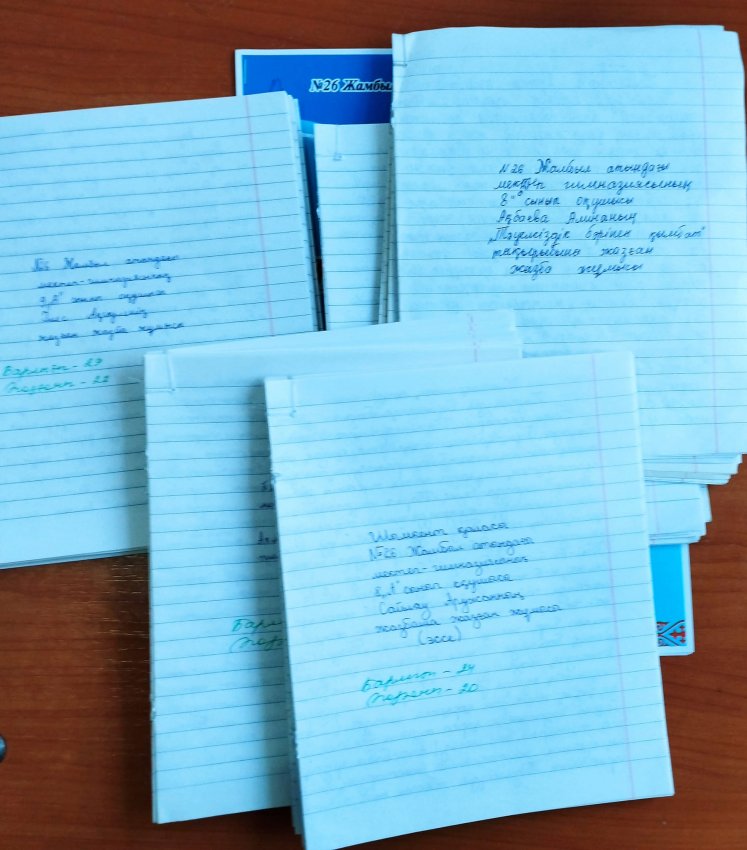 №26 Жамбыл
№26 Жамбыл атындағы
мектеп гимназиясының
8 "а" сынып оқушысы
Ақбаева Алинаның
„Тәуелсіздік бәрінен қымбат"
тақырыбына жазған
жазба жұмысы
№26 Жамбыл атындағы
мектеп-гимназияның
9 „А" сынып оқушысы
жазған жазба жұмысы
Барлығы - 27
Шымкент қаласы
№26 Жамбыл атындағы
мектеп-гимназияның
8 „А" сынып оқушысы
Сайлау Аружанның
жазбаша жазған жұмысы
(эссе)
Барлығы - 24